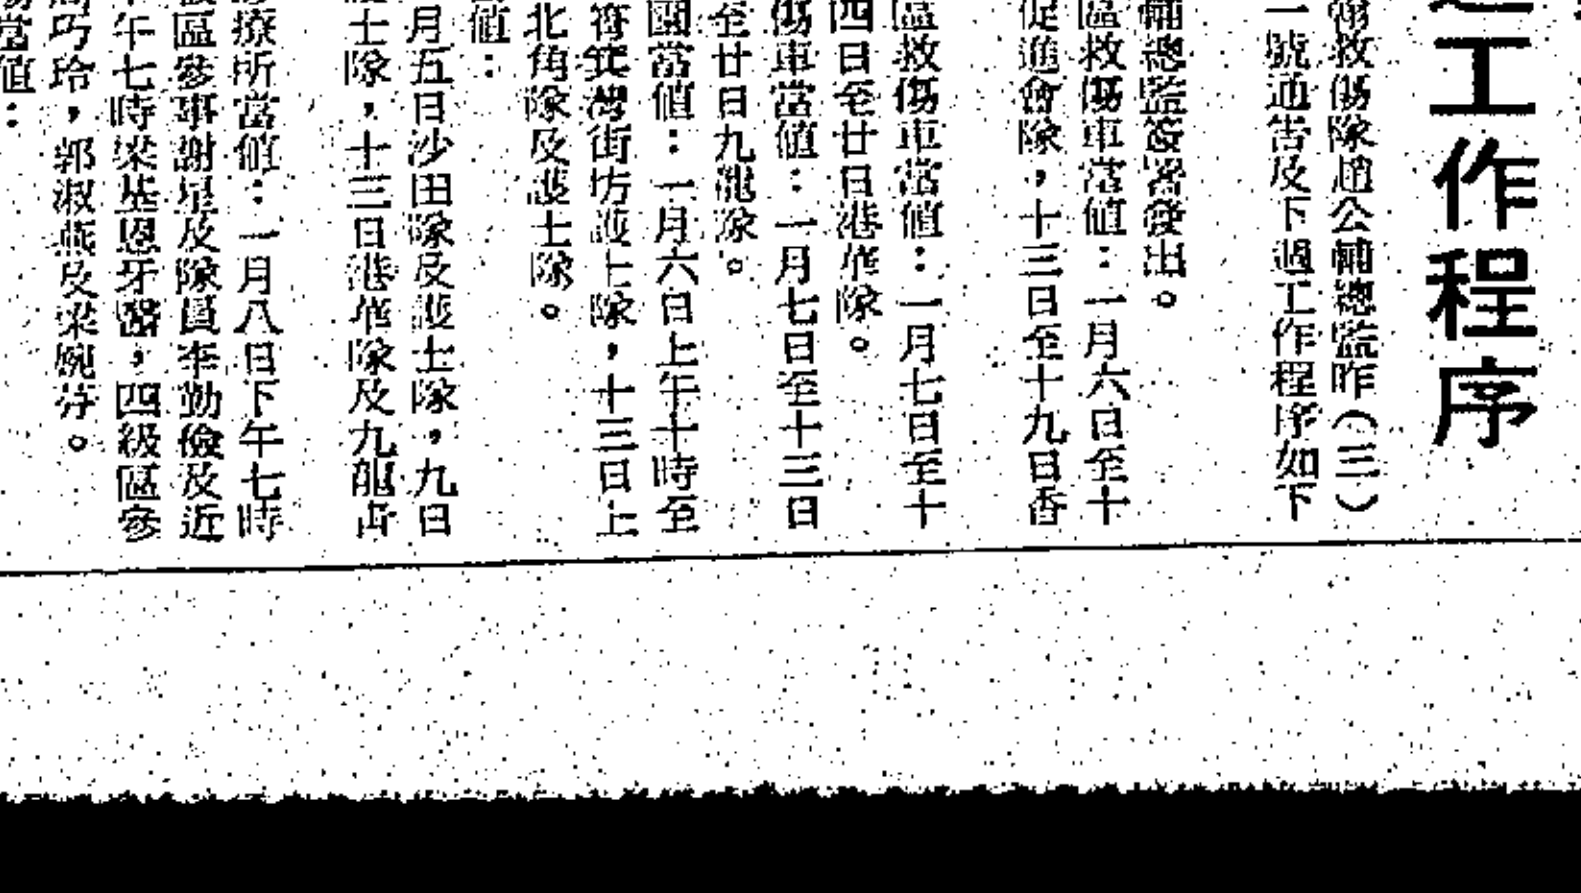 工作程序
救傷隊趙公輔總監昨（三）
一號通告及下週工作程序如下
輔總監簽署發出。
區救傷車當值：一月六日至十
促進會隊，十三日至十九日香
區救傷車當值：一月七日至十
四日至廿日港華隊。
傷車當值：一月七日至十三日
至廿日九龍隊。
園當值：一月六日上午十時至
筲箕灣街坊護士隊，十三日上
北角隊及護士隊。
值：
月五日沙田隊及護士隊，九日
士隊，十三日港華隊及九龍
療所當值：一月八日下午七時
區參事謝星及隊員李勤儉及近
午七時梁基恩牙醫，四級區參
巧玲，郭淑燕及梁婉芬。
當值：